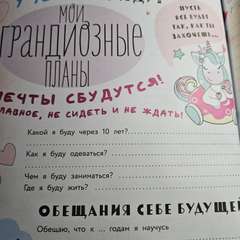 МОИ
ГРАНДИОЗНЫЕ
ПЛАНЫ
ПУСТЬ
ВСЁ БУДЕТ
ТАК, КАК ТЫ
ЗАХОЧЕШЬ...
МЕЧТЫ СБУДУТСЯ!
ГЛАВНОЕ, НЕ СИДЕТЬ И НЕ ЖДАТЬ!
Какой я буду через 10 лет?
Как я буду одеваться?
Чем я буду заниматься?
Где я буду жить?
ОБЕЩАНИЯ СЕБЕ БУДУЩЕЙ
Обещаю, что к ... годам я научусь